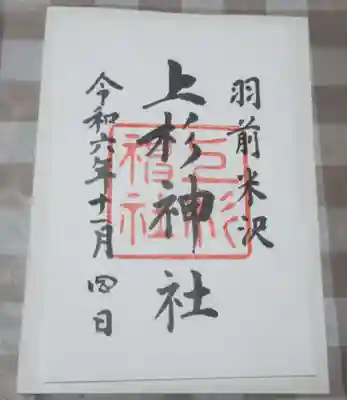 羽前米沢
上杉神社
上杉神社
令和六年十一月四日